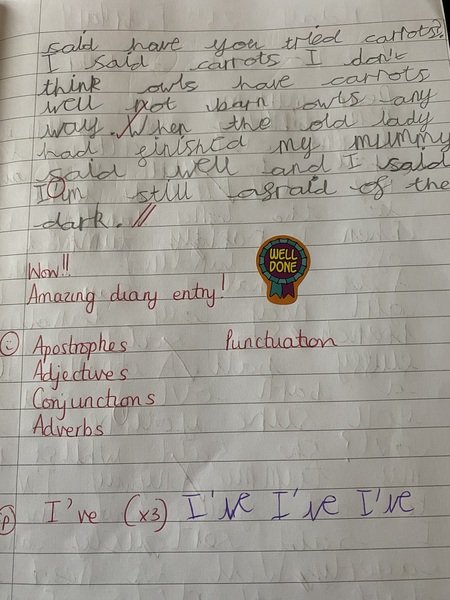 said have you tried carrots?
I said carrots I don't
think owls have carrots
well not barn owls any
way. When the old lady
had finished my mummy
said well and I said
I am still afraid of the
dark.
WELL
DONE
Wow!!
Amazing diary entry!
Apostrophes Punctuation
Adjectives
Conjunctions
Adverbs
P I've (x3) I've I've I've